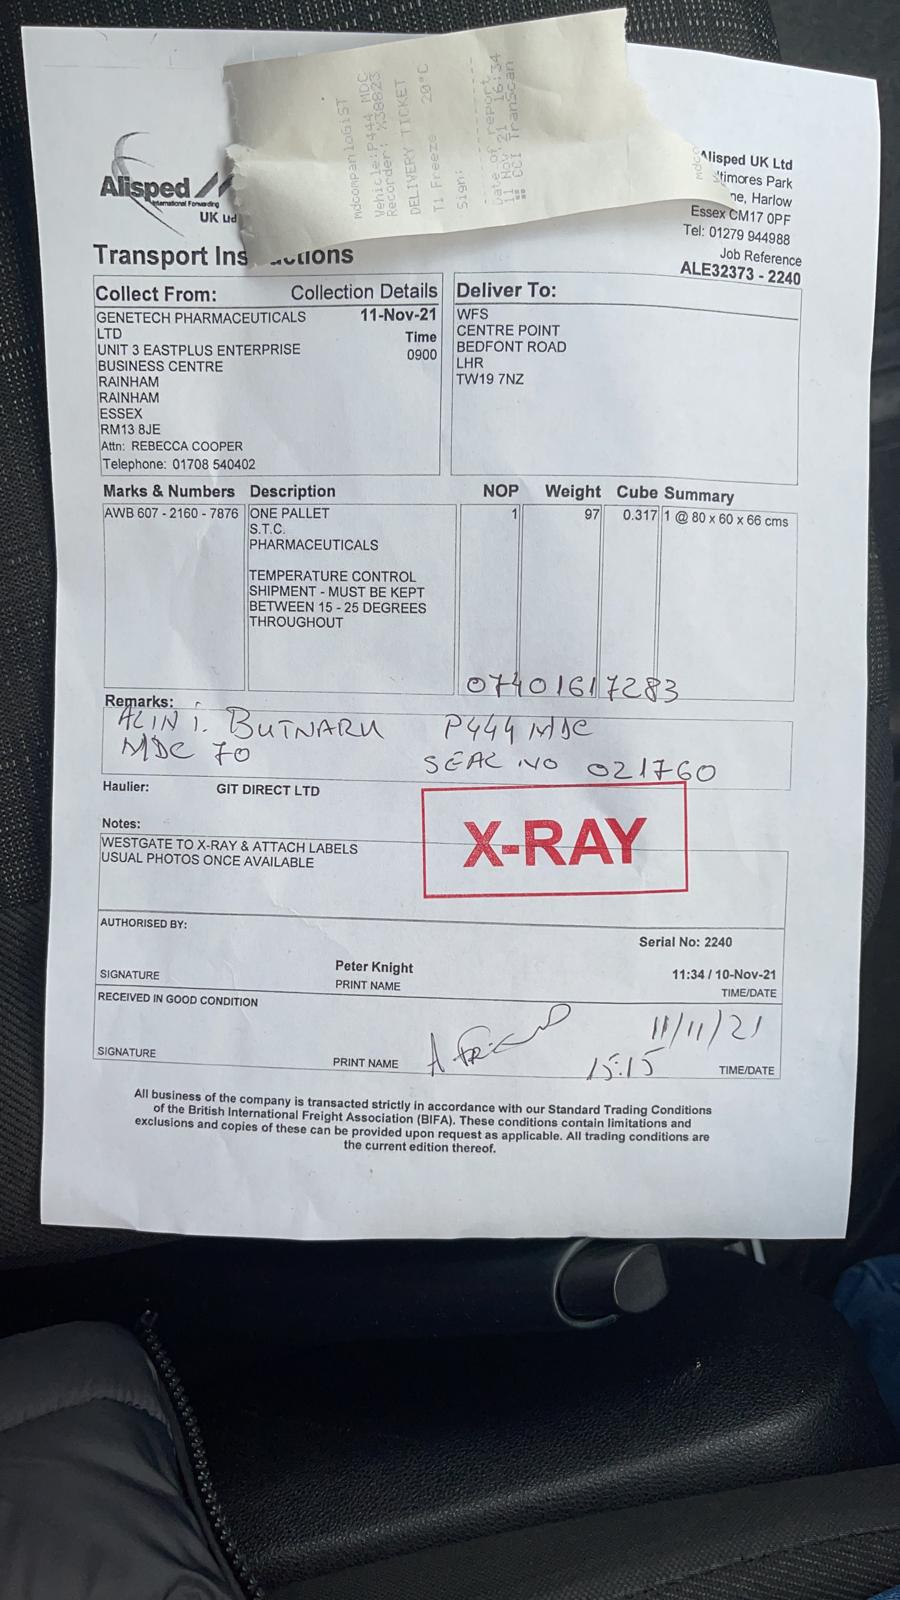 mdcompanlogist
Vehicle:P444 MDC
Recorder: X38823
DELIVERY TICKET
T1 Freeze 20°C
Sign:
Date of report
11 Nov 21 16:34
CCI TranScan
Alisped
International Forwarding
UK Ltd
Alisped UK Ltd
Harlow
Essex CM17 0PF
Tel: 01279 944988
Job Reference
ALE32373 - 2240
Transport
Collect From: Collection Details
GENETECH PHARMACEUTICALS 11-Nov-21
LTD Time
UNIT 3 EASTPLUS ENTERPRISE 0900
BUSINESS CENTRE
RAINHAM
RAINHAM
ESSEX
RM13 8JE
Attn: REBECCA COOPER
Telephone: 01708 540402
Deliver To:
WFS
CENTRE POINT
BEDFONT ROAD
LHR
TW19 7NZ
Marks & Numbers Description NOP Weight Cube Summary
AWB 607 - 2160 - 7876 ONE PALLET 1 97 0.317 1 @ 80 x 60 x 66 cms
S.T.C.
PHARMACEUTICALS
TEMPERATURE CONTROL
SHIPMENT - MUST BE KEPT
BETWEEN 15 - 25 DEGREES
THROUGHOUT
07401617283
Remarks:
ALIN i. BUTNARU P444 MDC
MDC 70 SEAL NO 021760
Haulier: GIT DIRECT LTD
X-RAY
Notes:
WESTGATE TO X-RAY & ATTACH LABELS
USUAL PHOTOS ONCE AVAILABLE
AUTHORISED BY:
Serial No: 2240
Peter Knight 11:34 / 10-Nov-21
SIGNATURE PRINT NAME TIME/DATE
RECEIVED IN GOOD CONDITION
11/11/21
15:15
SIGNATURE PRINT NAME TIME/DATE
All business of the company is transacted strictly in accordance with our Standard Trading Conditions
of the British International Freight Association (BIFA). These conditions contain limitations and
exclusions and copies of these can be provided upon request as applicable. All trading conditions are
the current edition thereof.